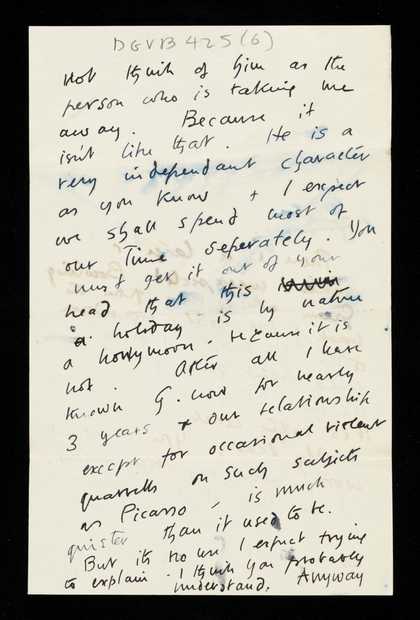 DGVB 425 (6)
not think of him as the
person who is taking me
away. Because it
isn't like that. He is a
very independant character
as you know + I expect
we shall spend most of
our time seperately. You
must get it out of your
head that this
a holiday is by nature
a honeymoon. Because it is
not. After all I have
known G. now for nearly
3 years + our relationship
except for occasional violent
quarrells on such subjects
as Picasso - is much
quieter than it used to be.
But its no use I expect trying
to explain. I think you probably
understand. Anyway